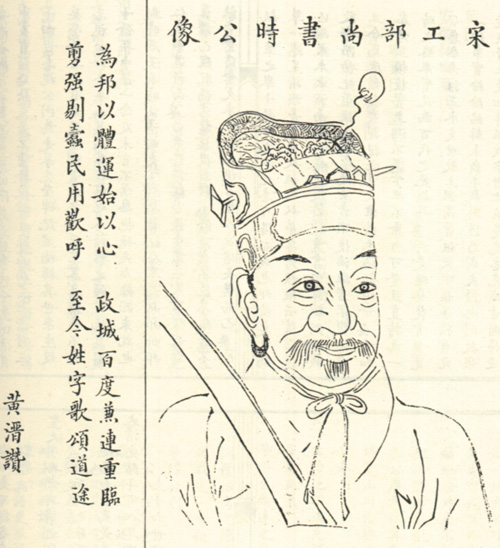 宋工部尚書時公像
為邦以體運始以心 政城百度蕙連重臨
剪强剔蠹民用歡呼 至今姓字歌頌道途
黃溍讚